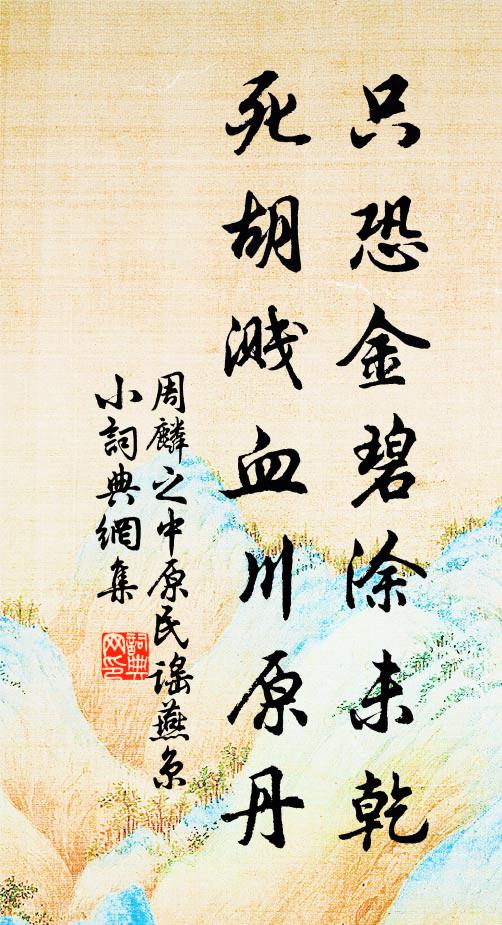 只恐金碧涂未乾
死胡溅血川原丹
周麟之中原民谣燕京
小詞典網集
詞典